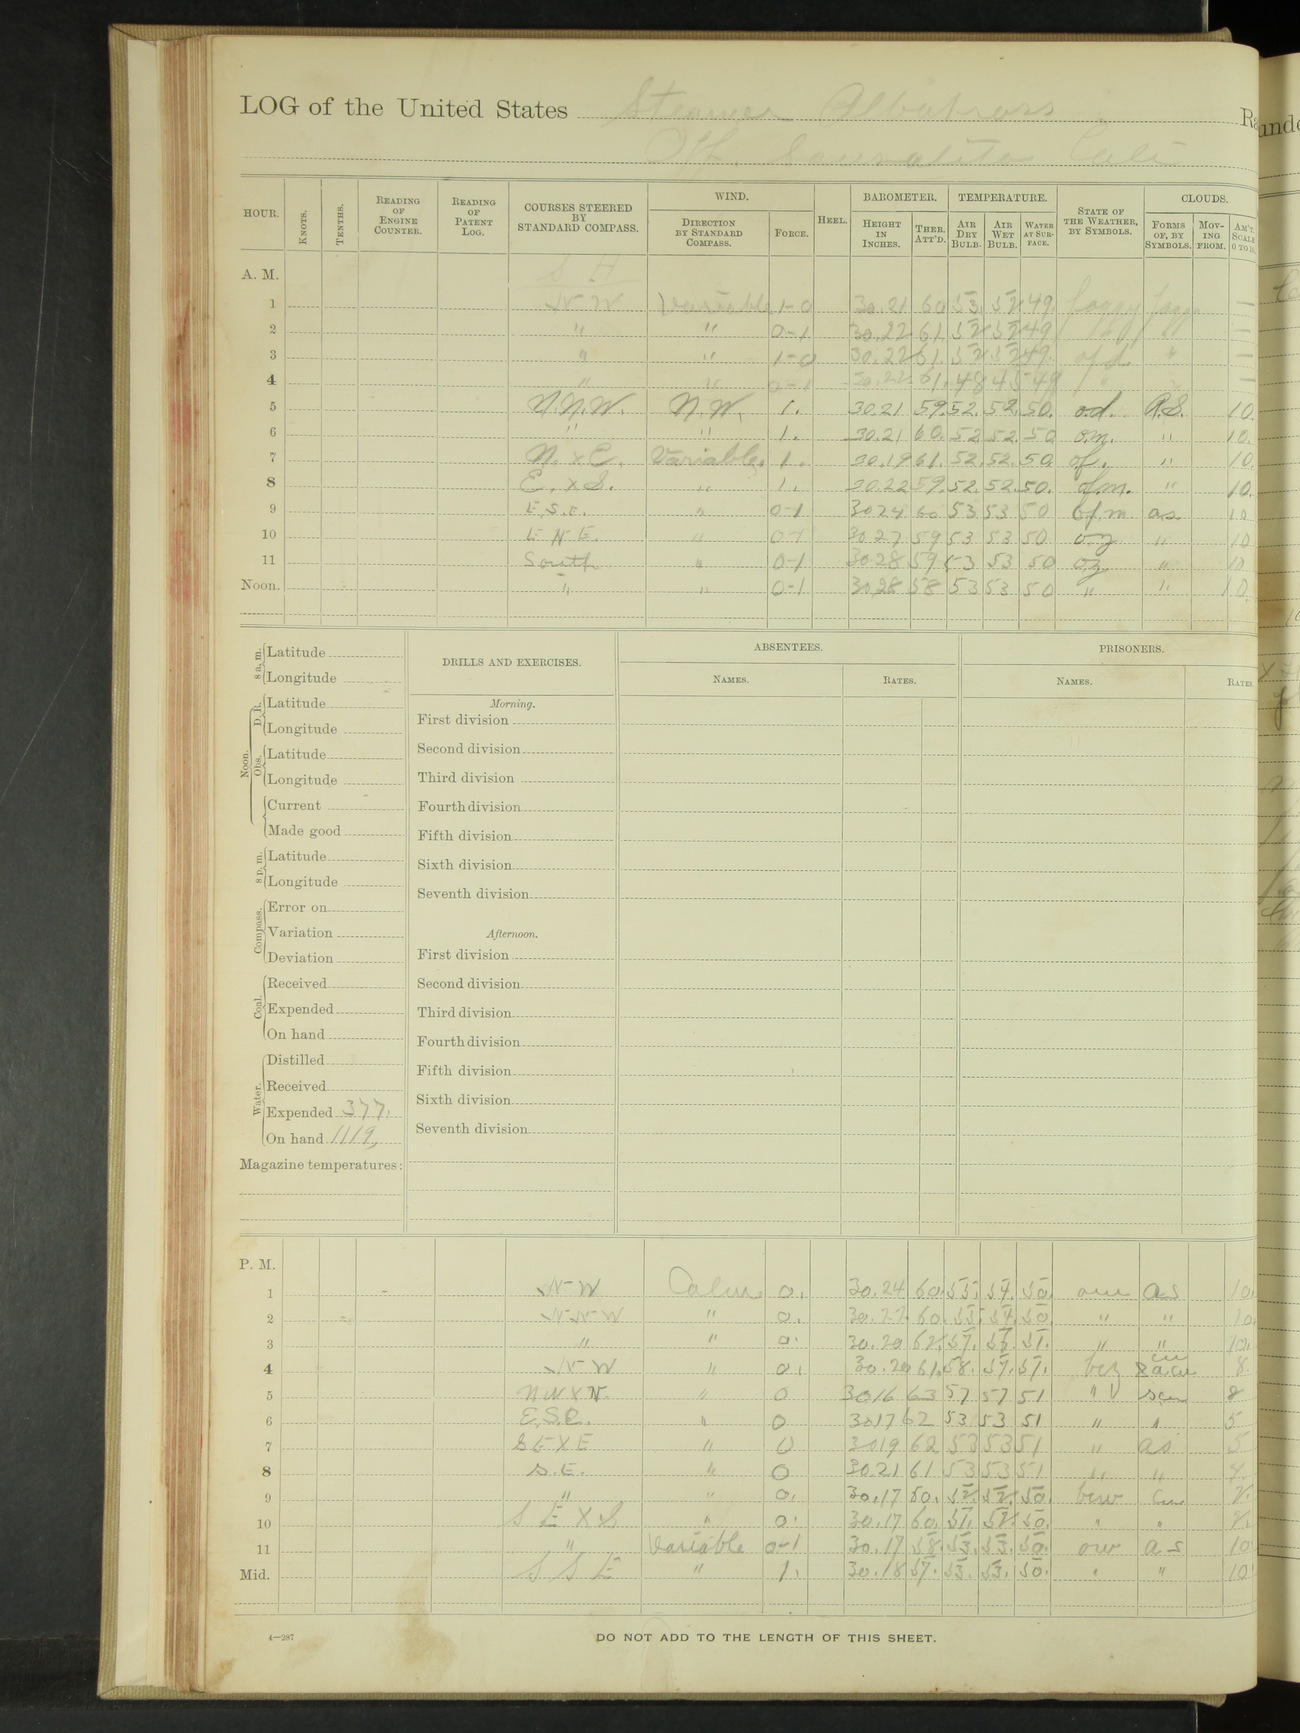 LOG of the United States Steamer Albatross Ra
Off Sausalito Cali
HOUR. KNOTS. TENTHS. READING OF ENGINE COUNTER. READING OF PATENT LOG. COURSES STEERED BY STANDARD COMPASS. WIND. DIRECTION BY STANDARD COMPASS. FORCE. HEEL. BAROMETER. HEIGHT IN INCHES. THER. ATT'D. TEMPERATURE. AIR DRY BULB. AIR WET BULB. WATER AT SURFACE. STATE OF THE WEATHER, BY SYMBOLS. CLOUDS. FORMS OF, BY SYMBOLS. MOVING FROM. AM'T. SCALE 0 TO 10.
A. M. S H
1 N W Variable 1-0 30.21 60 53. 52 49. foggy foggy —
2 " " 0-1 30.22 61. 52 52 49 " —
3 " " 1-0 30.22 61. 52 52 49. " —
4 " " 0-1 30.22 61. 48 45 49 " —
5 N.N.W. N.W. 1. 30.21 59. 52. 52. 50. o.d. A.S. 10.
6 " " 1. 30.21 60. 52 52. 50 o.m. " 10.
7 N. x E. Variable. 1. 30.19 61. 52. 52. 50. of. " 10.
8 E. x S. " 1. 30.22 59. 52. 52. 50. o.f.m. " 10.
9 E.S.E. " 0-1 30.24 60 53 53 50 ofm as 10
10 E N E. " 0-1 30.27 59 53 53 50 oz " 10
11 South " 0-1 30.28 59 53 53 50 oz " 10
Noon. " " 0-1 30.28 58 53 53 50 " " 10.
8 a. m. Latitude
Longitude
Noon. D. R. Latitude
Longitude
Obs. Latitude
Longitude
Current
Made good
8 p. m. Latitude
Longitude
Compass. Error on
Variation
Deviation
Coal. Received
Expended
On hand
Water. Distilled
Received
Expended 377.
On hand 1119.
Magazine temperatures:
DRILLS AND EXERCISES.
Morning.
First division
Second division
Third division
Fourth division
Fifth division
Sixth division
Seventh division
Afternoon.
First division
Second division
Third division
Fourth division
Fifth division
Sixth division
Seventh division
ABSENTEES.
NAMES. RATES.
PRISONERS.
NAMES. RATES.
P. M.
1 N W Calm 0. 30.24 60. 55. 54. 50. ow as 10.
2 N N W " 0. 30.22 60. 55. 54. 50. " " 10.
3 " " 0. 30.20 62. 57. 51. " " 10.
4 N W " 0. 30.20 61. 58. 57. 51. bcz 8.
5 N W x N. " 0 30.16 63 57 57 51 " 8
6 E.S.E. " 0 30.17 62 53 53 51 " " 5
7 S E X E " 0 30.19 62 53 53 51 " as 5
8 S.E. " 0 30.21 61 53 53 51 " " 4
9 " " 0. 30.17 60. 52. 52. 50. bcw cu 2.
10 S E X S " 0. 30.17 60. 51. 52. 50. " " 2.
11 " Variable 0-1 30.17 58. 53. 53. 50. ow as 10
Mid. S S E " 1. 30.18 57. 53. 53. 50. " " 10
4—287
DO NOT ADD TO THE LENGTH OF THIS SHEET.